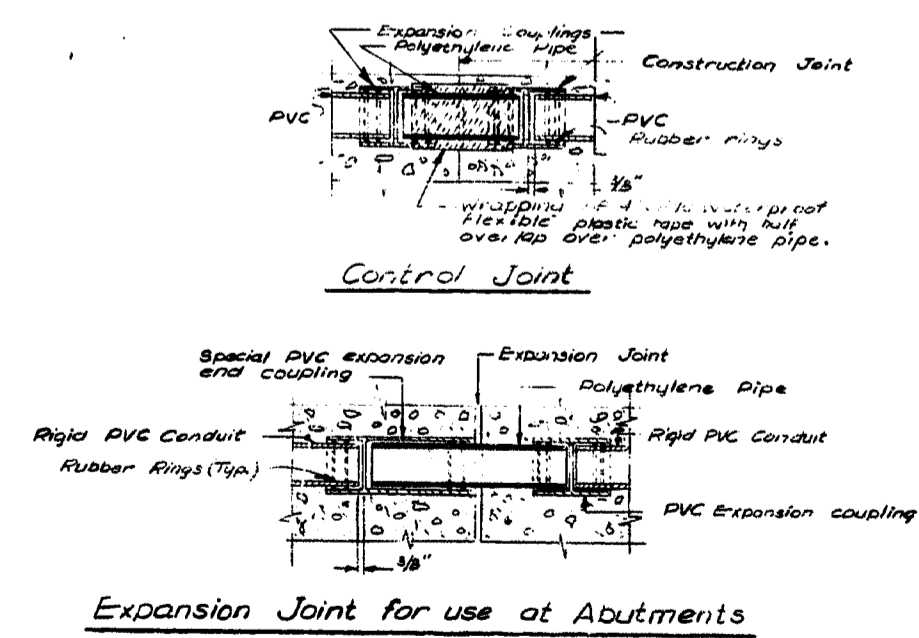 Expansion Couplings
Polyethylene Pipe
Construction Joint
PVC
PVC
Rubber rings
3/8"
wrapping of waterproof
flexible plastic tape with half
overlap over polyethylene pipe.
Control Joint
Special PVC expansion
end coupling
Expansion Joint
Polyethylene Pipe
Rigid PVC Conduit
Rigid PVC Conduit
Rubber Rings (Typ.)
PVC Expansion coupling
3/8"
Expansion Joint for use at Abutments